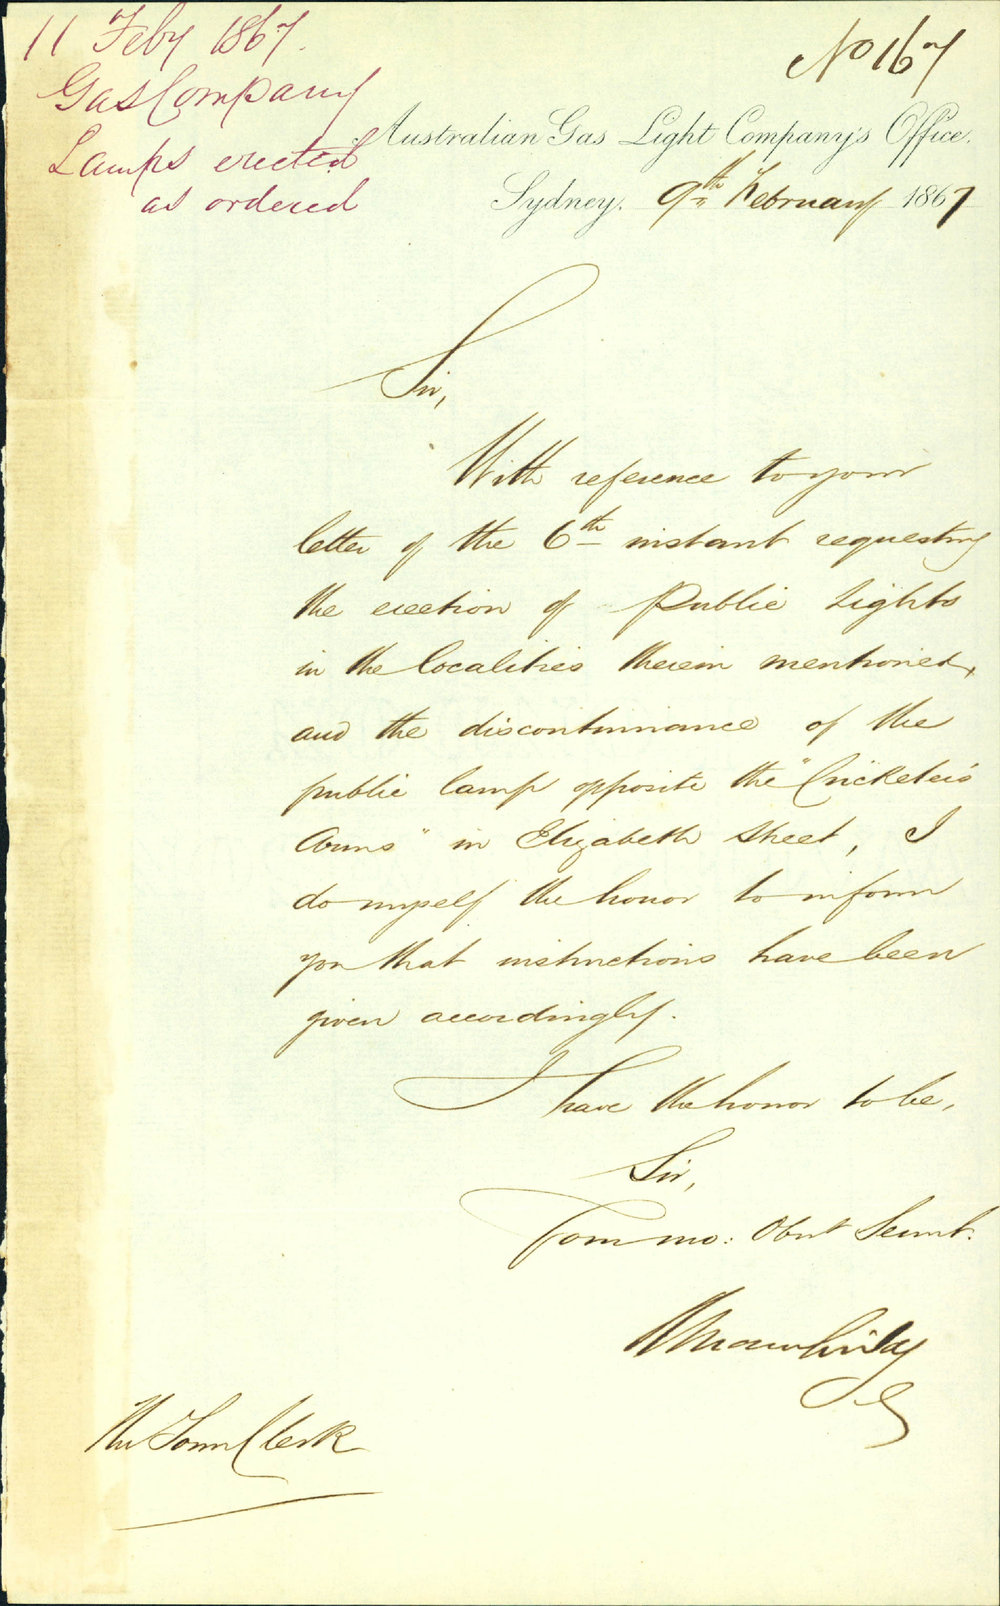 11 Feby 1867.
Gas Company
Lamps erected
as ordered
No 167
Australian Gas Light Company's Office.
Sydney. 9th February 1867
Sir,
With reference to your
letter of the 6th instant requesting
the erection of Public Lights
in the localities therein mentioned,
and the discontinuance of the
public lamp opposite the "Cricketers
Arms" in Elizabeth Street, I
do myself the honor to inform
you that instructions have been
given accordingly.
I have the honor to be,
Sir,
Your mo: Obnt Servnt.
The Town Clerk